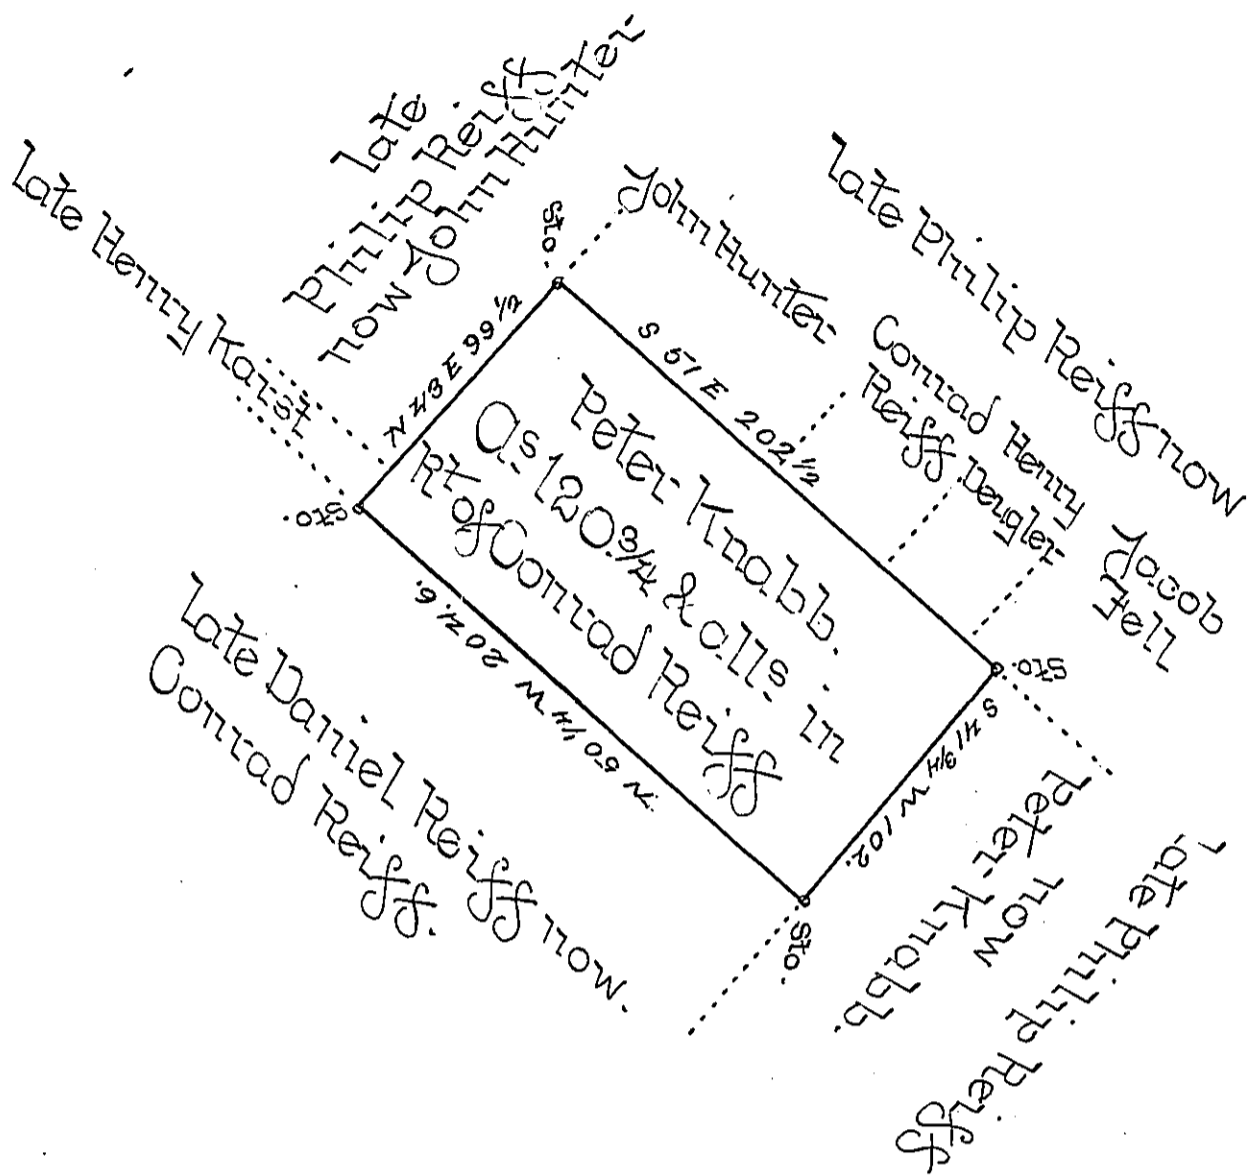 late
Philip Reiff
now John Hunter
late Henry Karst
Sto.
John Hunter
late Philip Reiff now
Conrad Reiff
Henry Dengler
Jacob Fell
N 43 E 99 1/2
S 51 E 202 1/2
Peter Knabb.
As 120.3/4 & alls. in
Rt of Conrad Reiff
Sto.
N 50 1/4 W 204.6.
Sto.
S 41 3/4 W 102.
Sto.
late Daniel Reiff now.
Conrad Reiff.
late Philip Reiff
now
Peter Knabb.